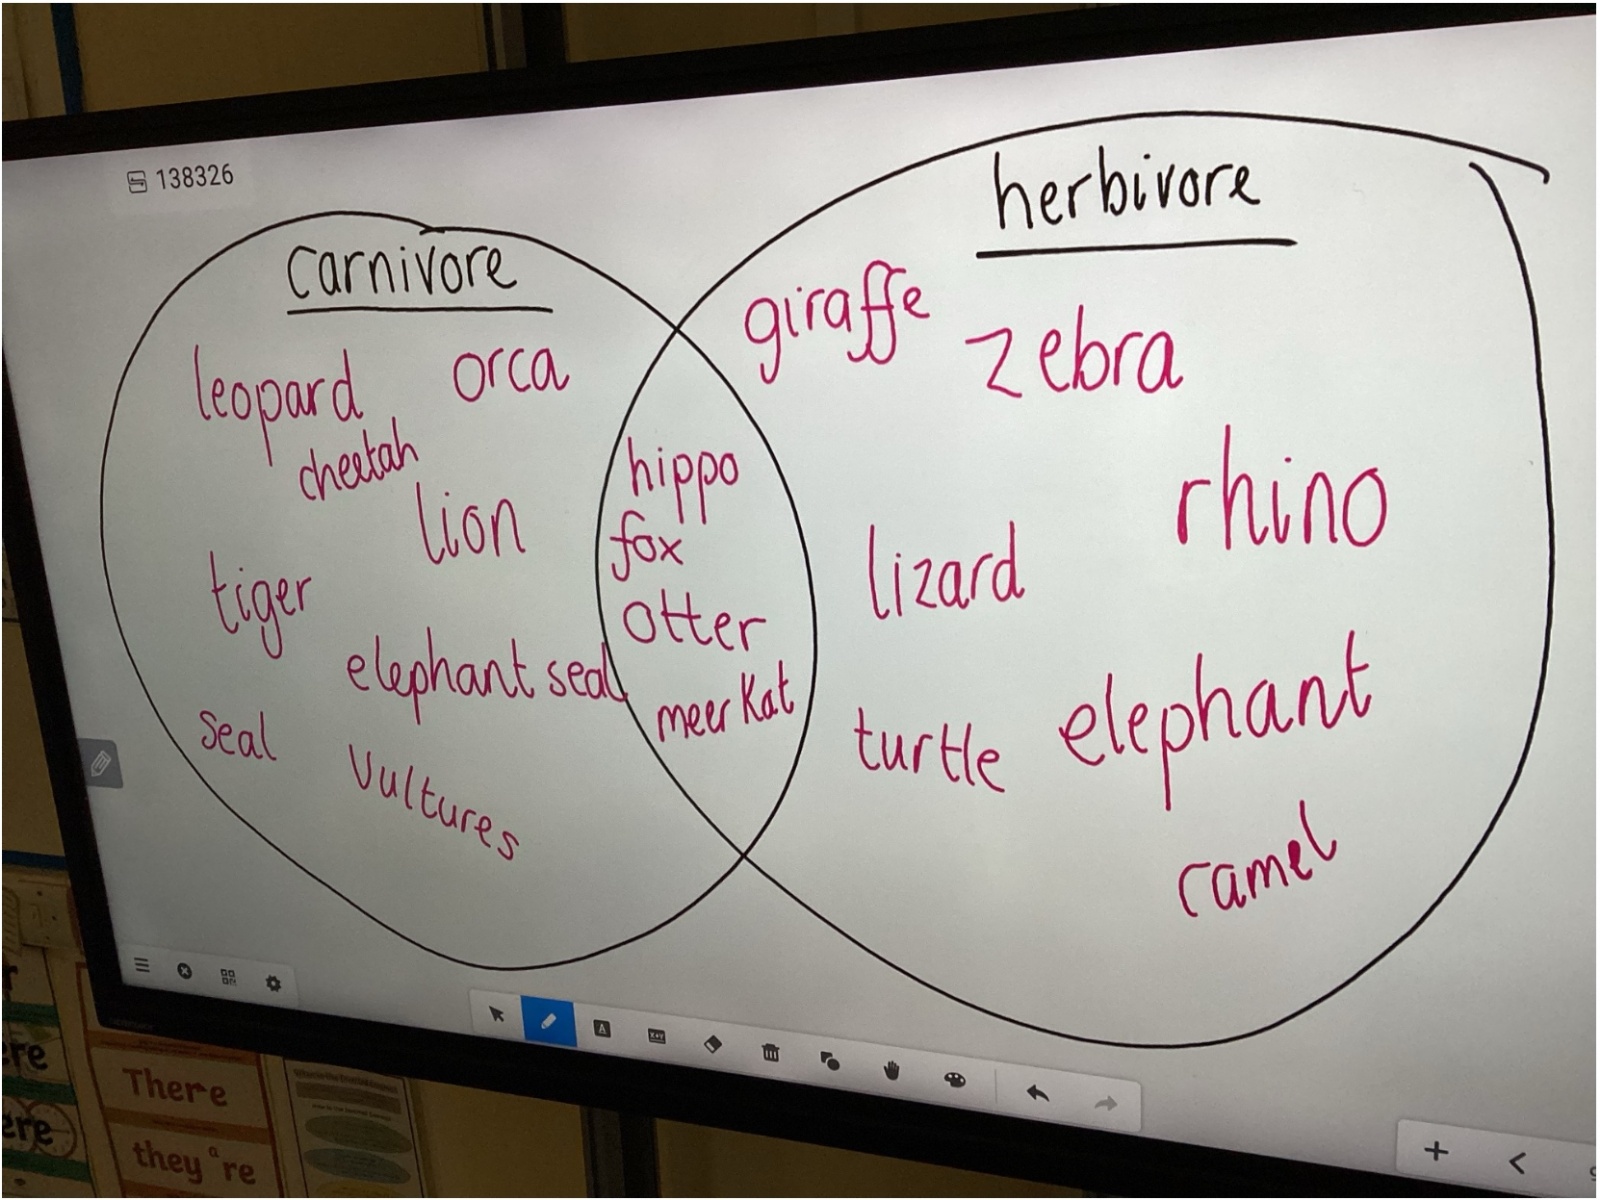 138326
carnivore
herbivore
leopard
orca
cheetah
lion
tiger
elephant seal
seal
vultures
hippo
fox
otter
meerkat
giraffe
zebra
rhino
lizard
turtle
elephant
camel
ere
There
ere
they're